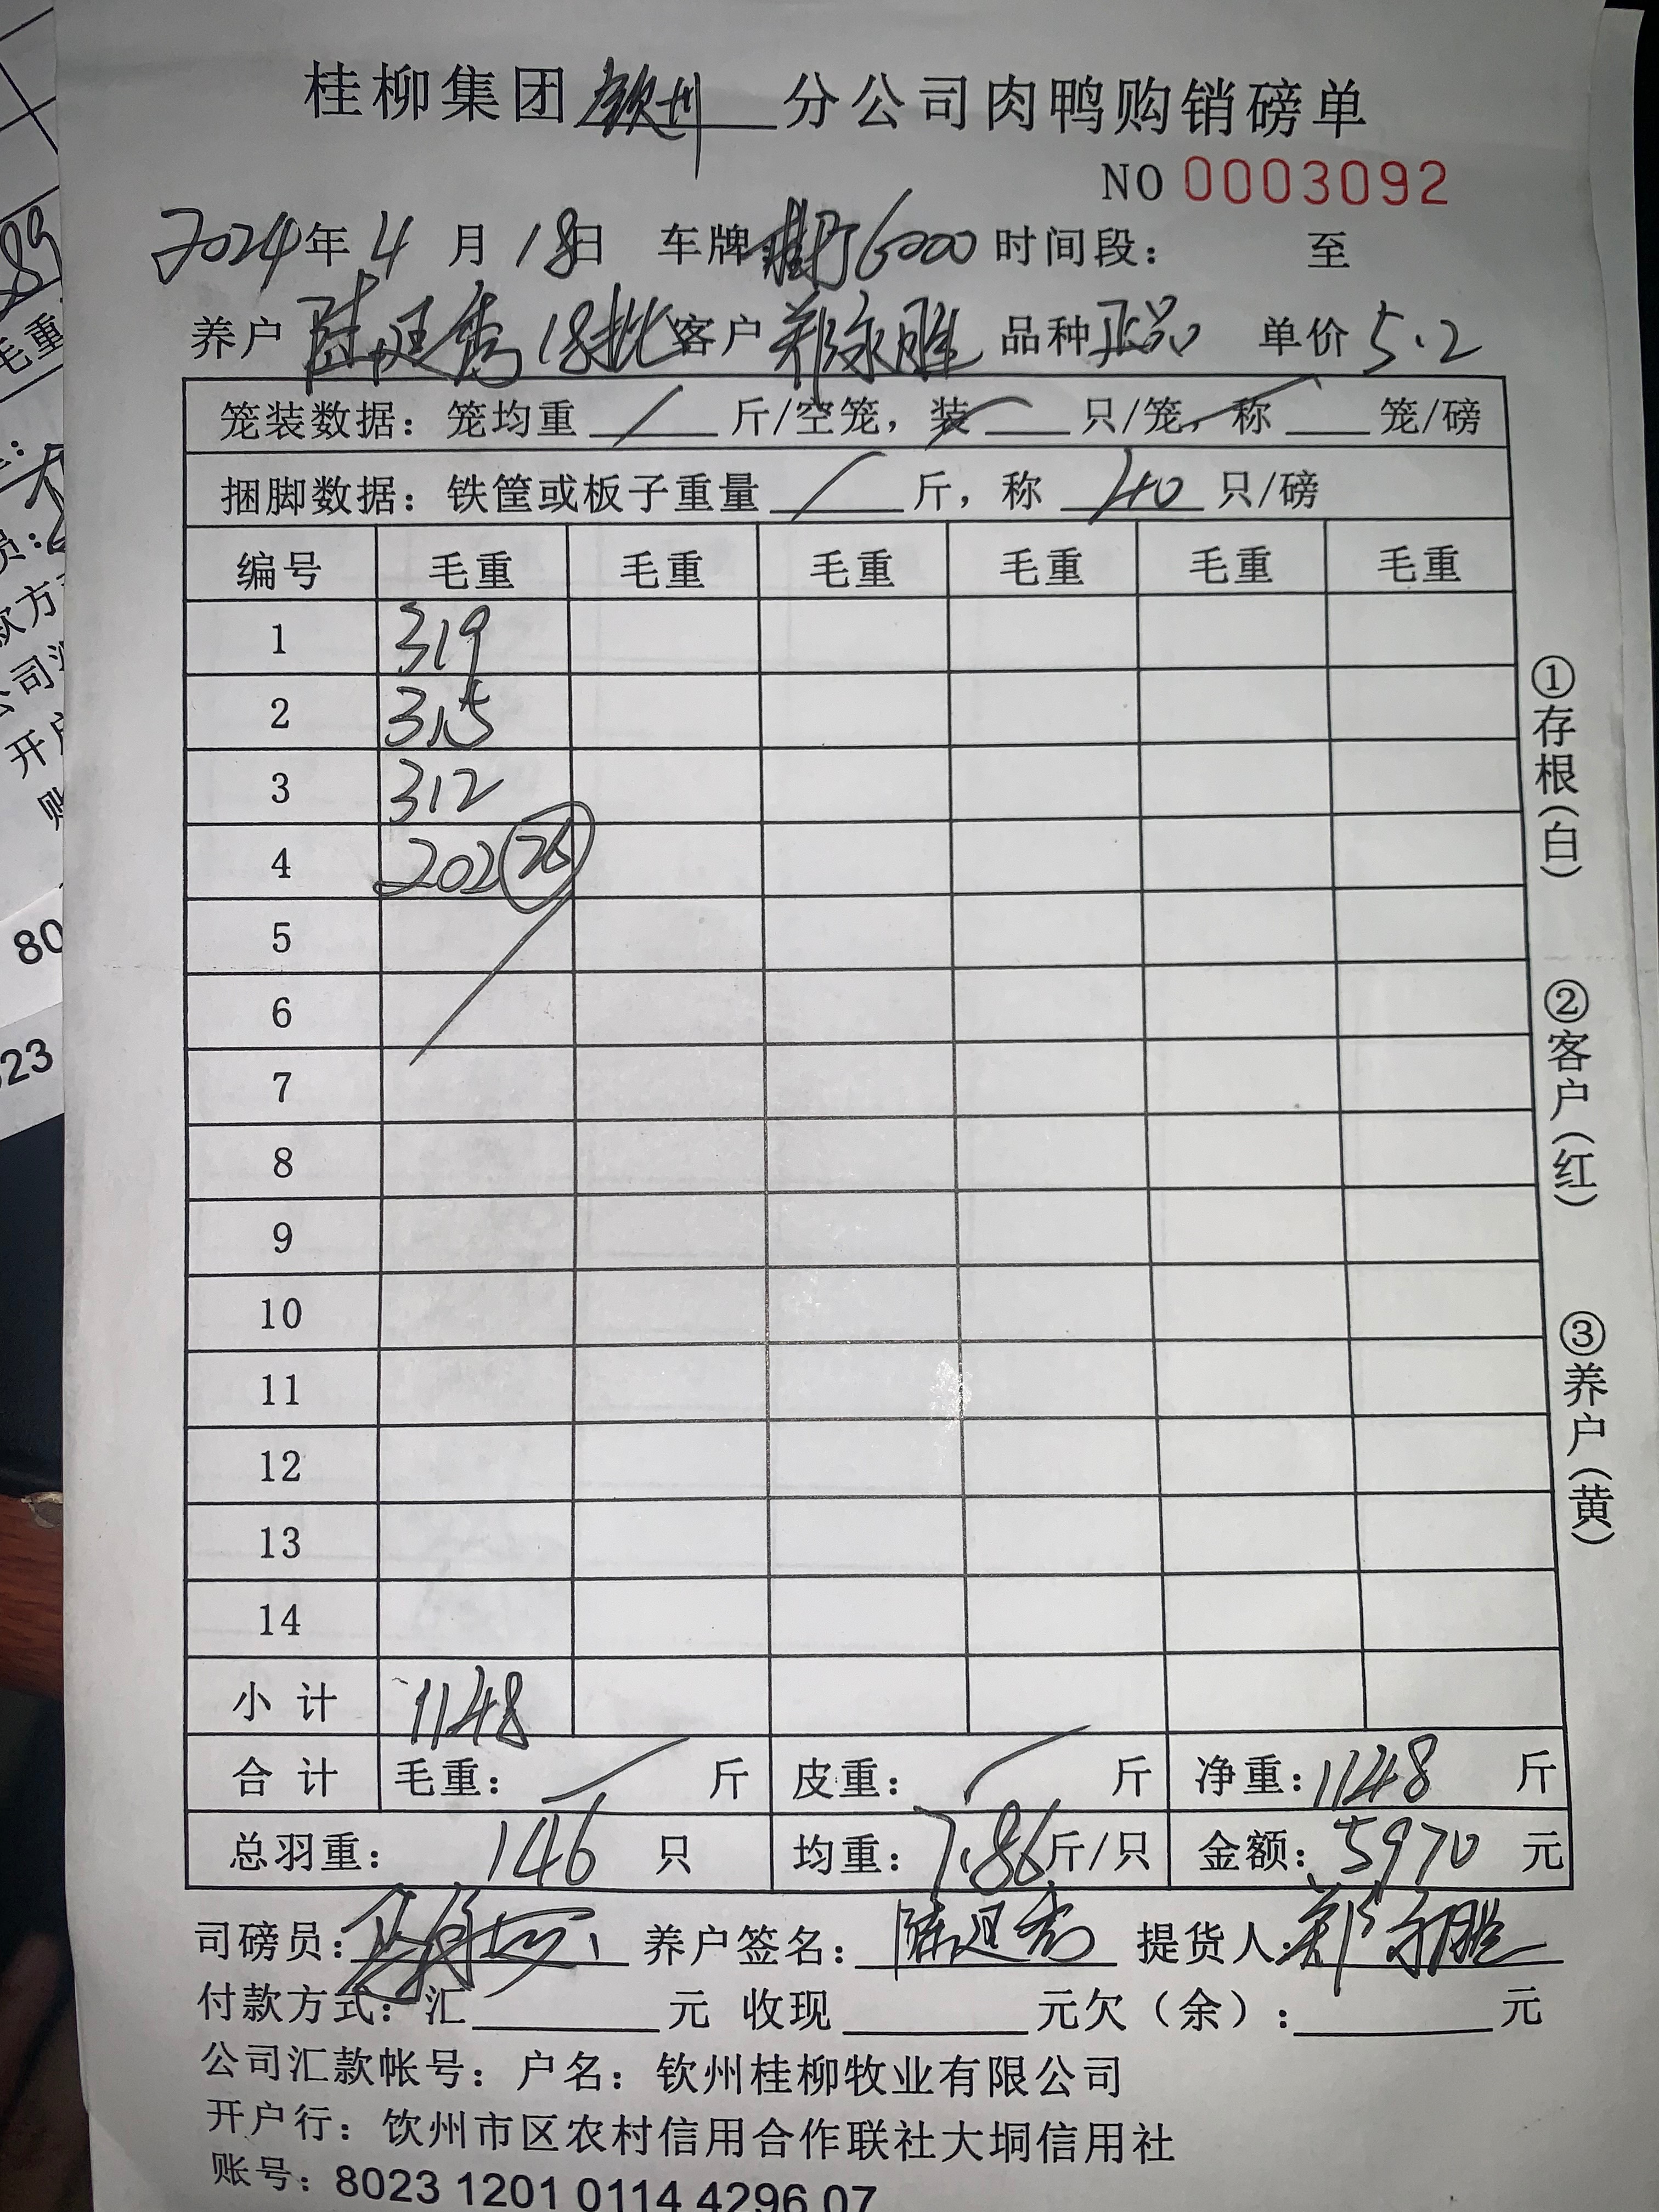 桂柳集团 钦州 分公司肉鸭购销磅单
NO 0003092
2024年 4 月 18日 车牌 6000 时间段： 至
养户 陆廷秀 18批 客户 郑永胜 品种 正品 单价 5.2
笼装数据：笼均重 / 斤/空笼，装 只/笼，称 笼/磅
捆脚数据：铁筐或板子重量 / 斤，称 40 只/磅
编号 毛重 毛重 毛重 毛重 毛重 毛重
1 319
2 315
3 312
4 202 26
5
6
7
8
9
10
11
12
13
14
小 计 1148
合 计 毛重： / 斤 皮重： / 斤 净重：1148 斤
总羽重： 146 只 均重：7.86斤/只 金额：5970 元
司磅员： 养户签名：陆廷秀 提货人：郑永胜
付款方式：汇 元 收现 元欠（余）： 元
公司汇款帐号：户名：钦州桂柳牧业有限公司
开户行：钦州市区农村信用合作联社大垌信用社
账号：8023 1201 0114 4296 07
①存根（白）
②客户（红）
③养户（黄）
89
毛重
80
23